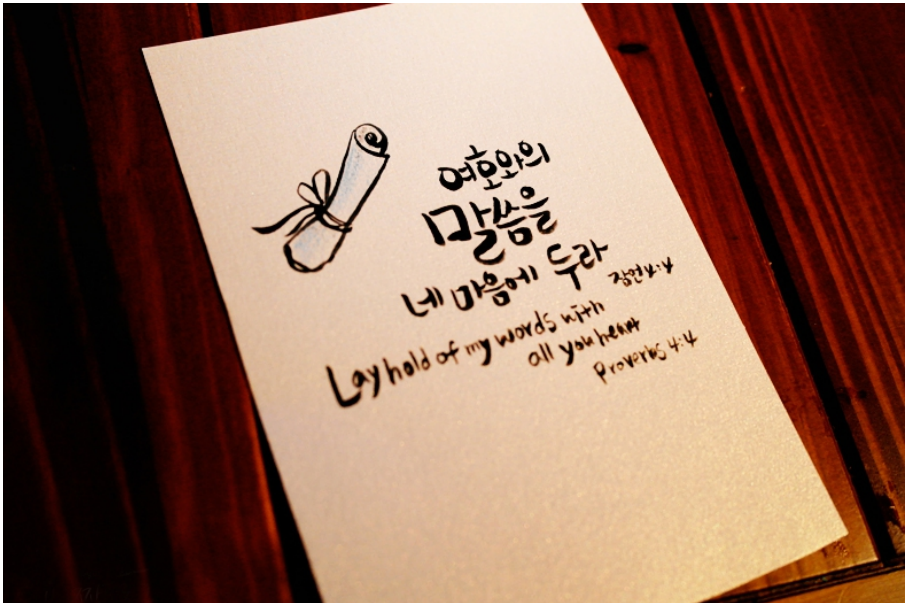 여호와의
말씀을
네 마음에 두라
잠언 4:4
Lay hold of my words with
all you heart
Proverbs 4:4